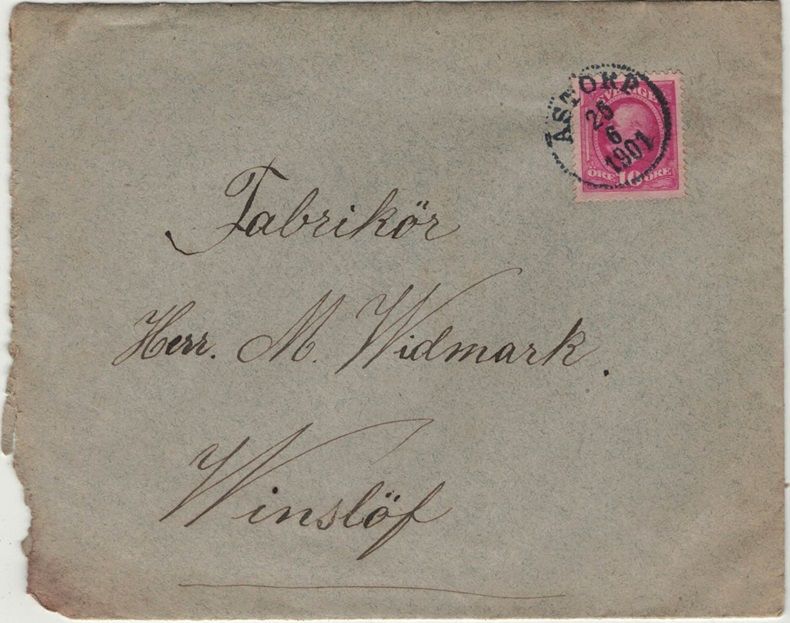 ÅSTORP
26
6
1901
SVERIGE
ÖRE 10 ÖRE
Fabrikör
Herr. M. Widmark.
Winslöf